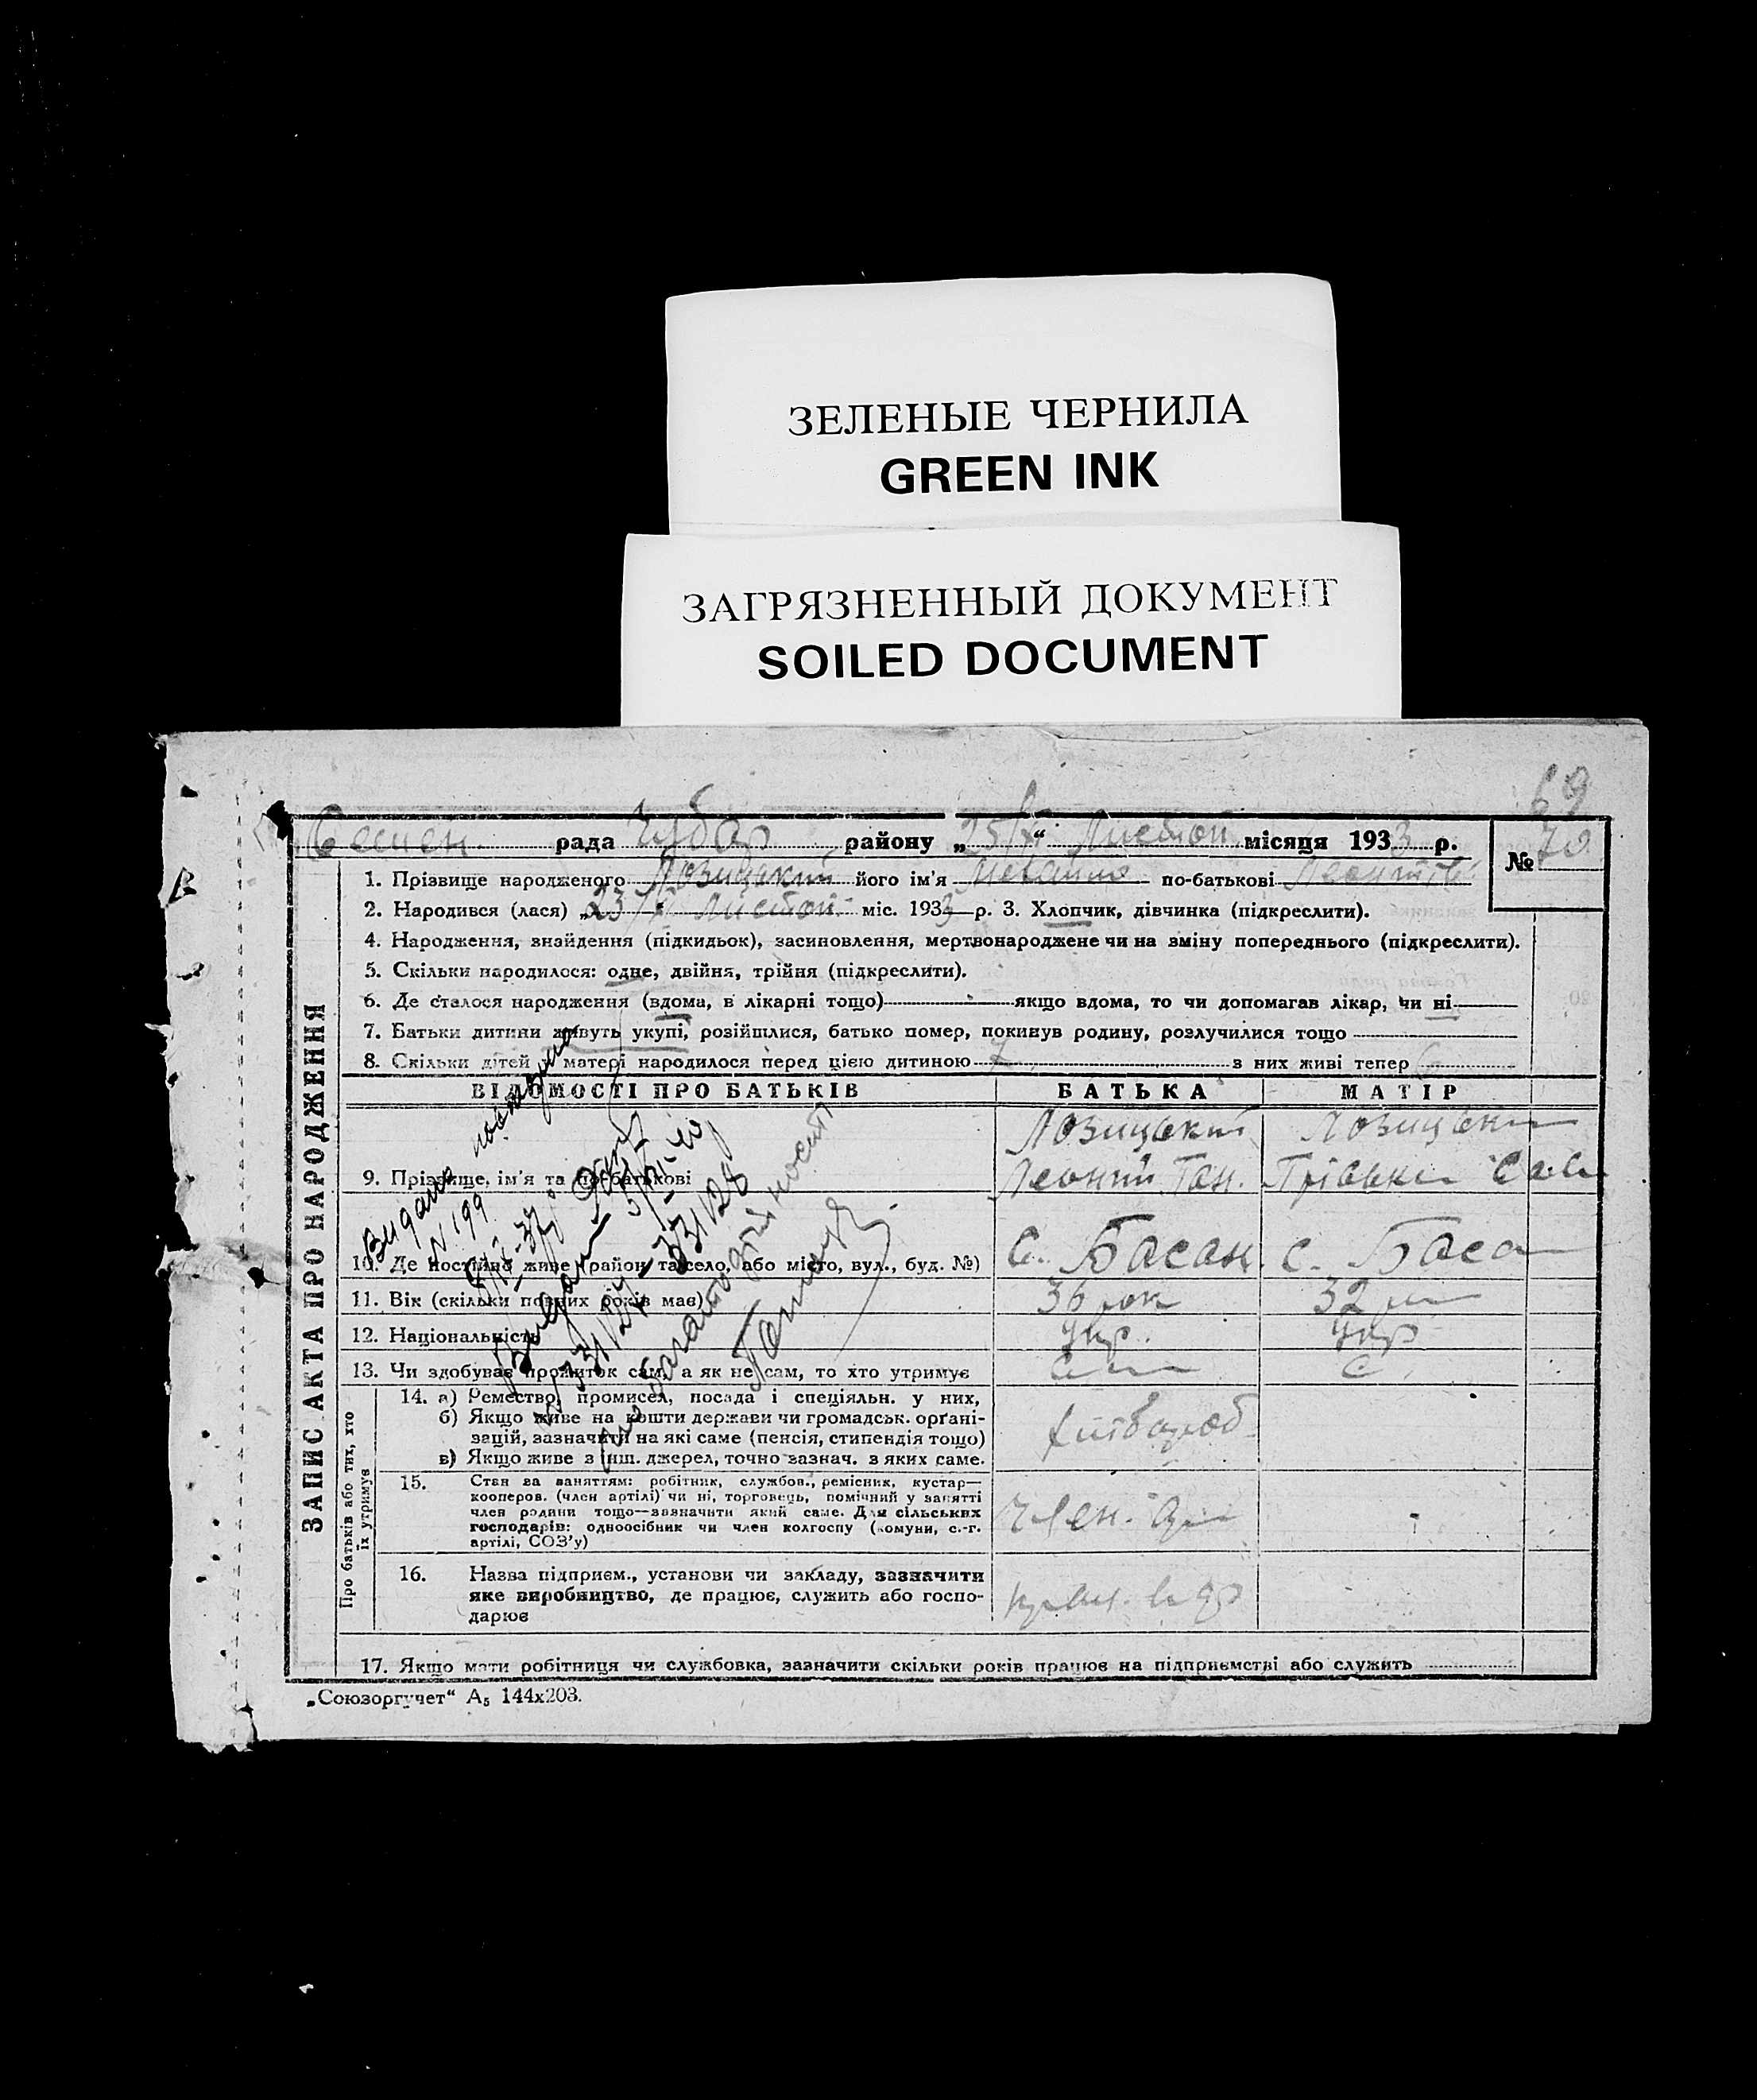 ЗЕЛЕНЫЕ ЧЕРНИЛА
GREEN INK
ЗАГРЯЗНЕННЫЙ ДОКУМЕНТ
SOILED DOCUMENT
69
рада Чубар району „25/XI“ Листоп місяця 1933 р. № 70
ЗАПИС АКТА ПРО НАРОДЖЕННЯ
1. Прізвище народженого Лозицький його ім'я Михайло по-батькові Леонтів
2. Народився (лася) „23/XI“ Листоп. міс. 1933 р. 3. Хлопчик, дівчинка (підкреслити).
4. Народження, знайдення (підкидьок), засиновлення, мертвонароджене чи на зміну попереднього (підкреслити).
5. Скільки народилося: одне, двійня, трійня (підкреслити).
6. Де сталося народження (вдома, в лікарні тощо) якщо вдома, то чи допомагав лікар, чи ні
7. Батьки дитини живуть укупі, розійшлися, батько помер, покинув родину, розлучилися тощо
8. Скільки дітей у матері народилося перед цією дитиною 7 з них живі тепер
ВІДОМОСТІ ПРО БАТЬКІВ БАТЬКА МАТІР
Лозицький Лозицьки
9. Прізвище, ім'я та по-батькові Леонтій
10. Де постійно живе (район та село, або місто, вул., буд. №) с. Басан. с. Баса
11. Вік (скільки повних років має) 36 рок 32
12. Національність Укр. Укр
13. Чи здобуває прожиток сам, а як не сам, то хто утримує сам с
Про батьків або тих, хто їх утримує
14. а) Ремество, промисел, посада і спеціяльн. у них,
б) Якщо живе на кошти держави чи громадськ. органі-
зацій, зазначити на які саме (пенсія, стипендія тощо)
в) Якщо живе з інш. джерел, точно зазнач. з яких саме.
хлібороб
15. Стан за заняттям: робітник, службов., ремісник, кустар—
кооперов. (член артілі) чи ні, торговець, помічний у занятті
член родини тощо—зазначити який саме. Для сільських
господарів: одноосібник чи член колгоспу (комуни, с.-г.
артілі, СОЗ'у)
Член.
16. Назва підприєм., установи чи закладу, зазначити
яке виробництво, де працює, служить або госпо-
дарює
17. Якщо мати робітниця чи службовка, зазначити скільки років працює на підприємстві або служить
Видано повторно
N 199
„Союзоргучет“ А₅ 144х203.